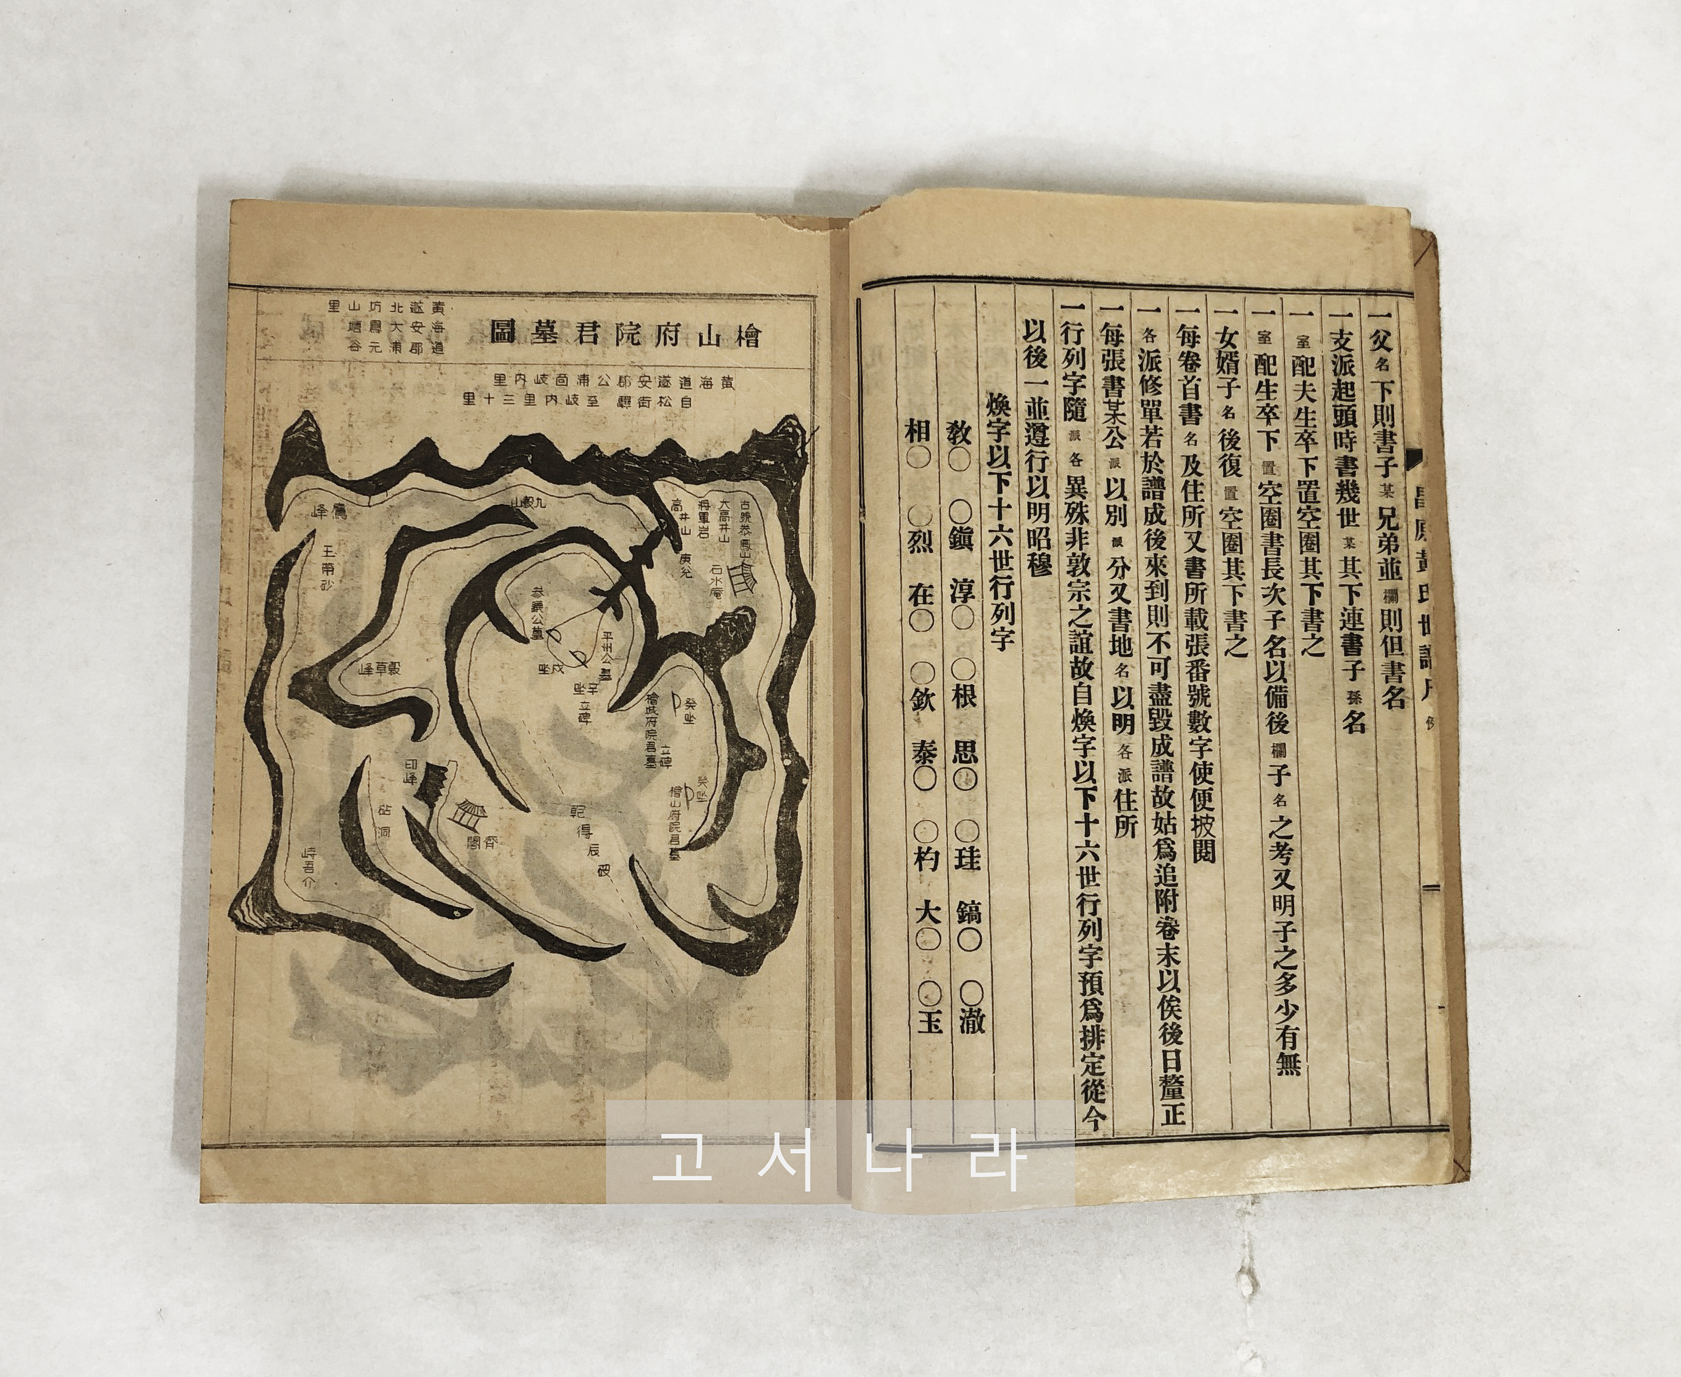 一父名下則書子某兄弟並欄則但書名
一支派起頭時書幾世某其下連書子孫名
一室配夫生卒下置空圈其下書之
一室配生卒下置空圈書長次子名以備後欄子名之考又明子之多少有無
一女婿子名後復置空圈其下書之
一每卷首書名及住所又書所載張番號數字使便披閱
一各派修單若於譜成後來到則不可盡毀成譜故姑爲追附卷末以俟後日釐正
一每張書某公派以別派分又書地名以明各派住所
一行列字隨派各異殊非敦宗之誼故自煥字以下十六世行列字預爲排定從今
以後一並遵行以明昭穆
煥字以下十六世行列字
敎○ ○鎭 淳○ ○根 思○ ○珪 鎬○ ○澈
相○ ○烈 在○ ○欽 泰○ ○杓 大○ ○玉
檜山府院君墓圖
黃海道
遂安郡
北大浦
坊
山
里
自松街驛至岐內里三十里
鷹峰
九峴山
高井山
將軍岩
大高井山
庚兌
石水庵
平州公墓
戌坐
辛坐
立碑
癸坐
立碑
癸坐
檜山府院君墓
印峰
齊閣
乾得辰破
고서나라